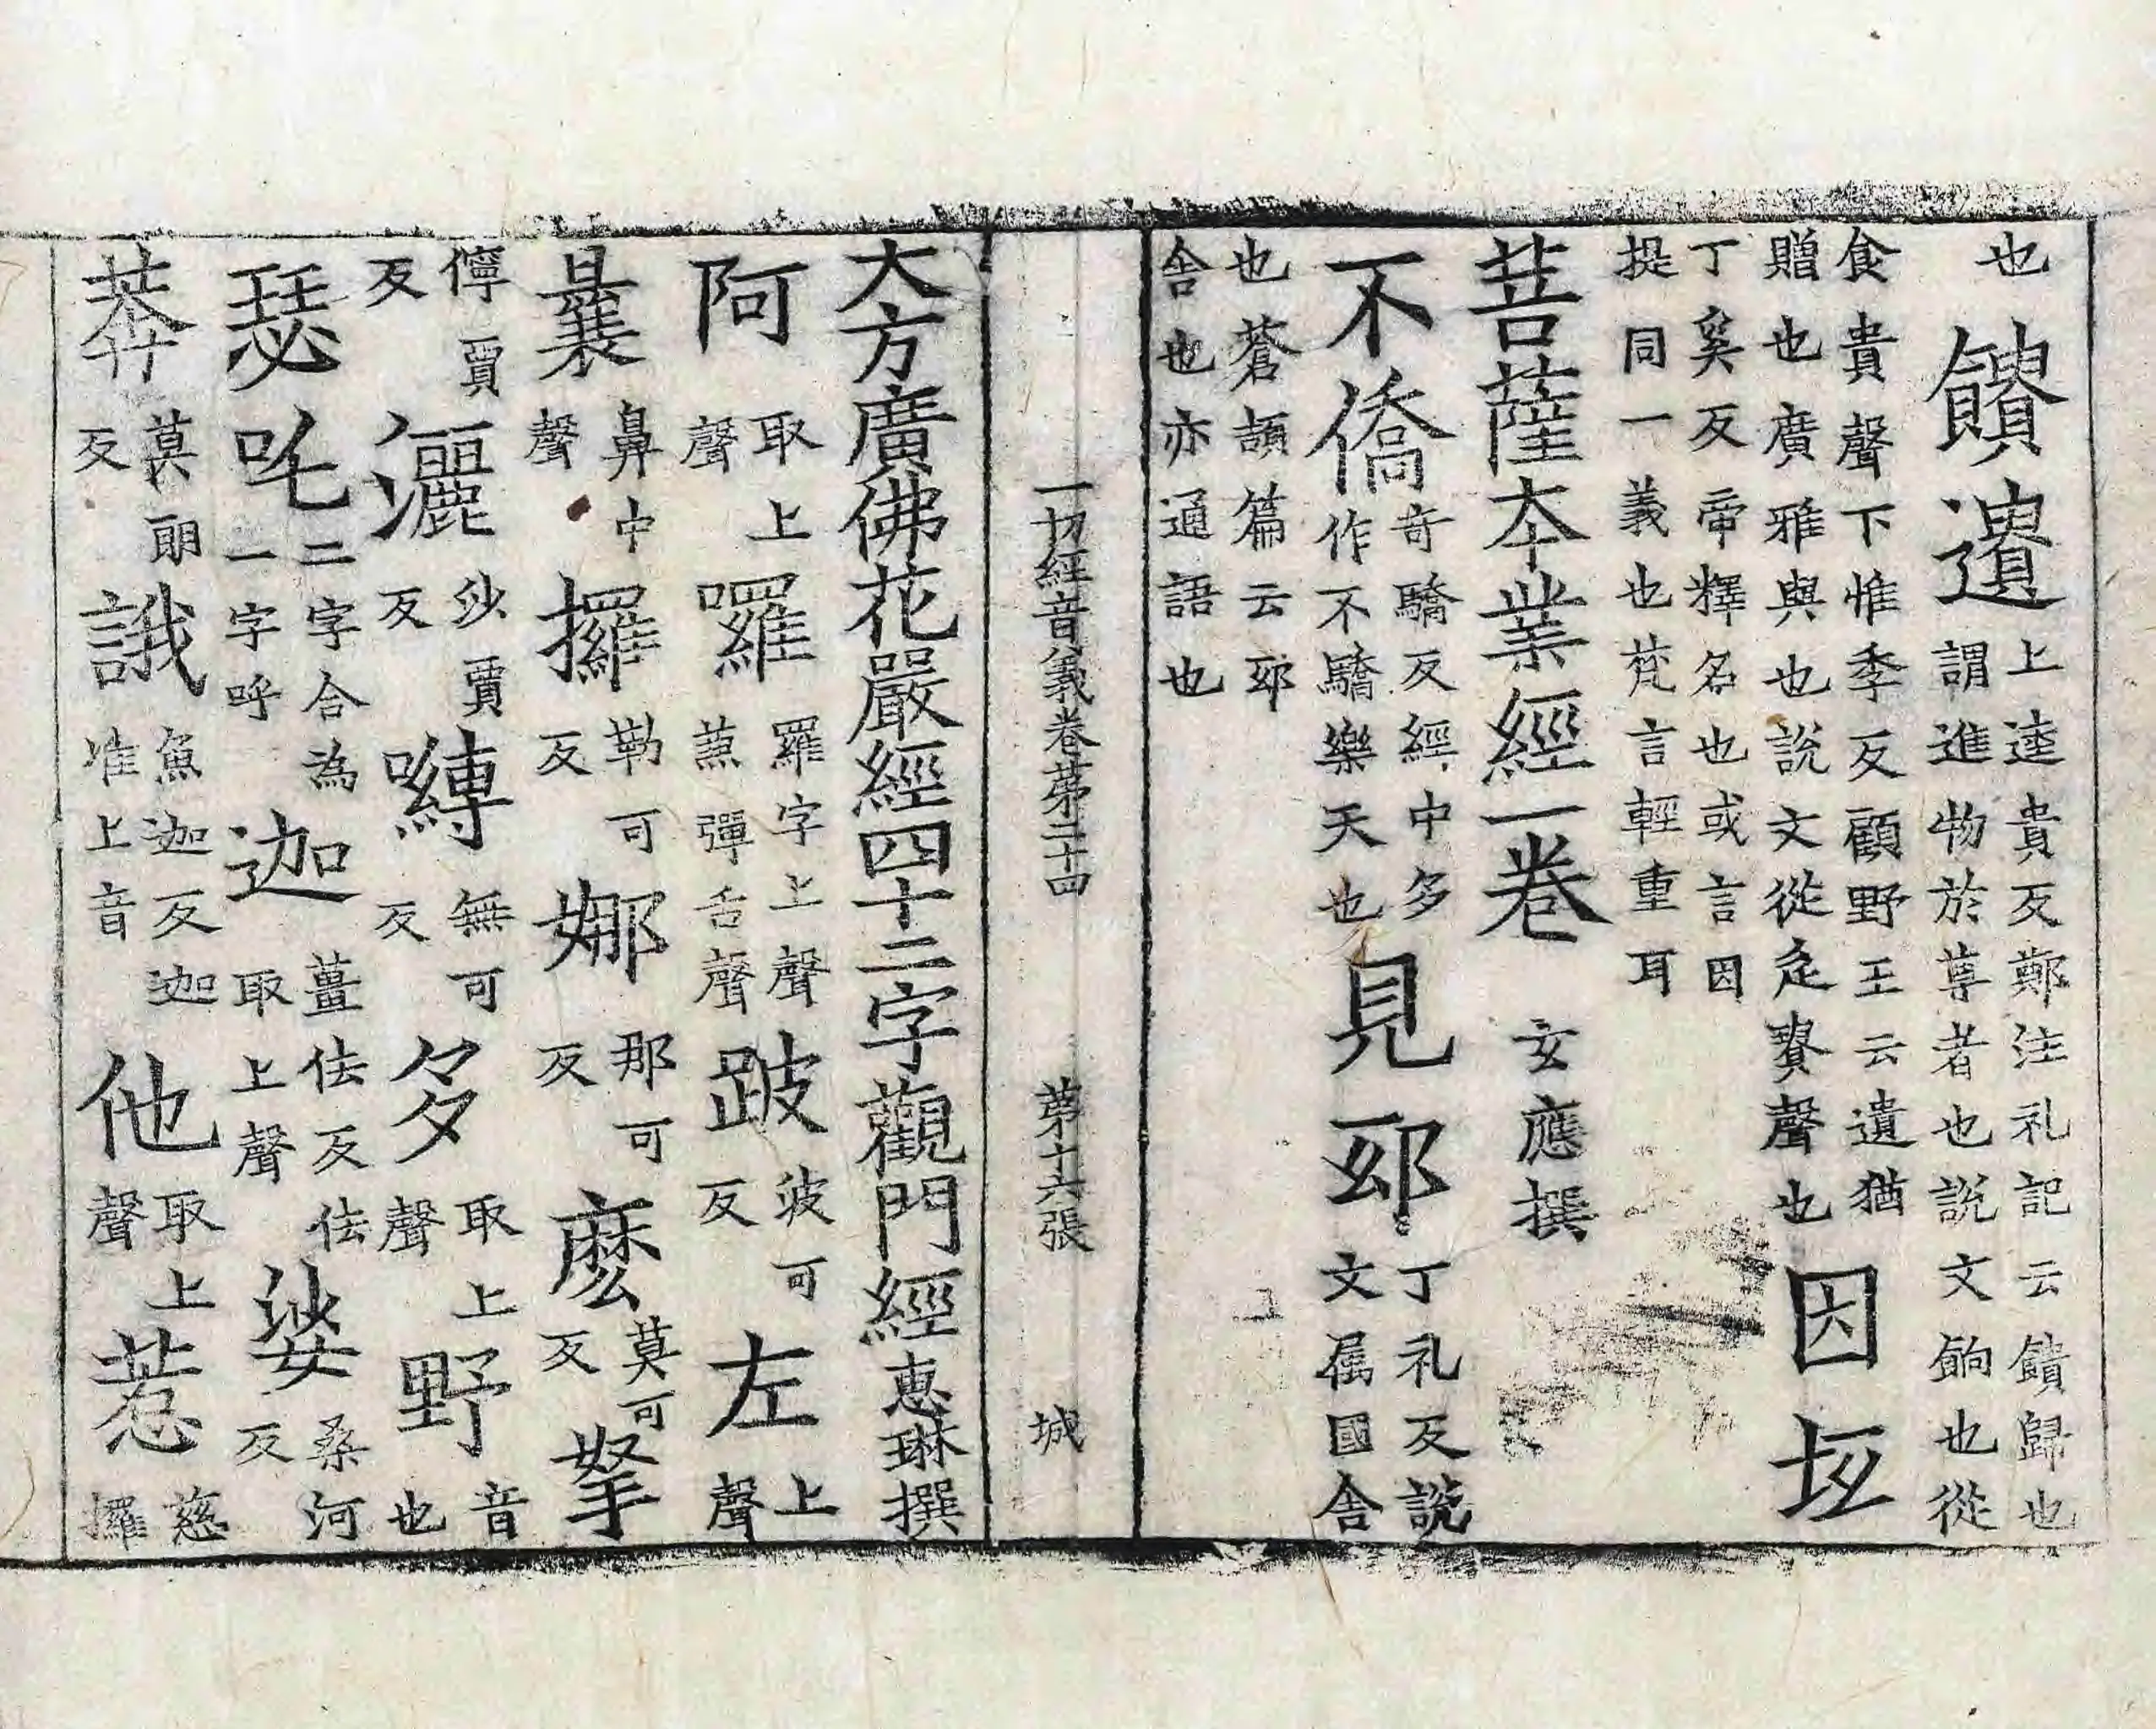 也饋遺上逵貴反鄭注礼記云饋歸也謂進物於尊者也說文餉也從
食貴聲下惟季反顧野王云遺猶贈也廣雅與也說文從辵賷聲也因坻
丁奚反帝釋名也或言因提同一義也梵言輕重耳
菩薩本業經一卷 玄應撰
不僑奇驕反經中多作不驕樂天也見邸丁礼反說文属國舍
也蒼頡篇云邸舍也亦通語也
一切經音義卷第二十四 第十六張 城
大方廣佛花嚴經四十二字觀門經惠琳撰
阿取上聲囉羅字上聲兼彈舌聲跛波可反左上聲
曩鼻中聲攞勒可反娜那可反麽莫可反拏
儜賈反灑沙賈反嚩無可反多取上聲野音也
瑟吒二字合為一字呼迦薑佉反佉取上聲娑桑河反
莽莫朗反誐魚迦反迦准上音他取上聲惹慈攞